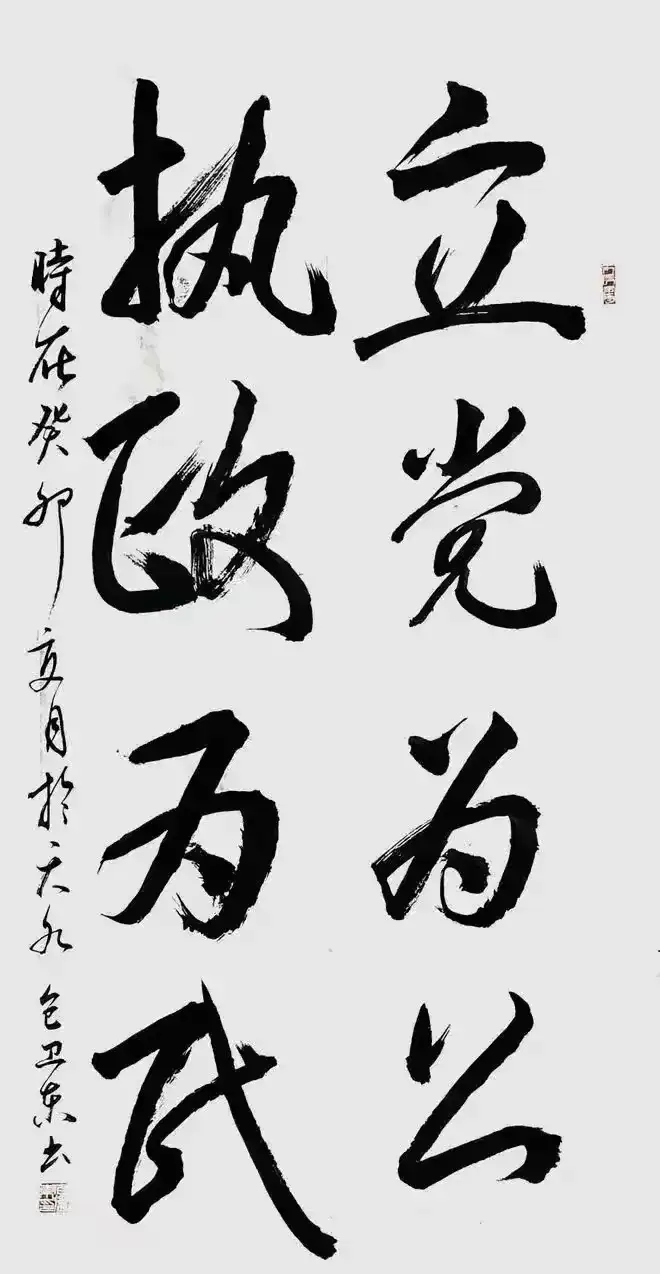 立党为公
执政为民
時在癸卯夏月於天水 包卫东书